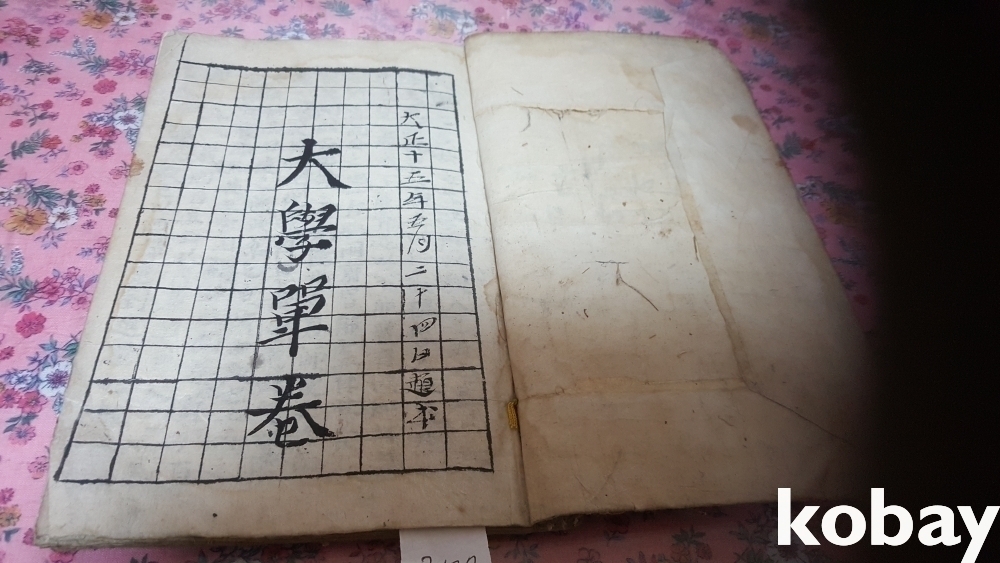 大正十五年五月二十四日題本
大學單卷
kobay